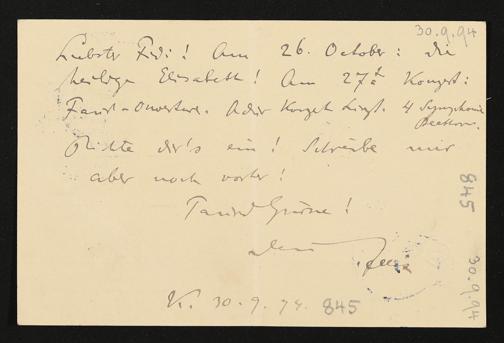 30.9.94
Liebster Fedi! Am 26. October: die
heilige Elisabeth! Am 27t Konzert:
Faust-Ouverture. Adur Konzert Liszt. 4 Symphonie
Beethov.
Richte dir's ein! Schreibe mir
aber noch vorher!
Tausend Grüsse!
Dein
K. 30.9.94 845
845
30.9.94